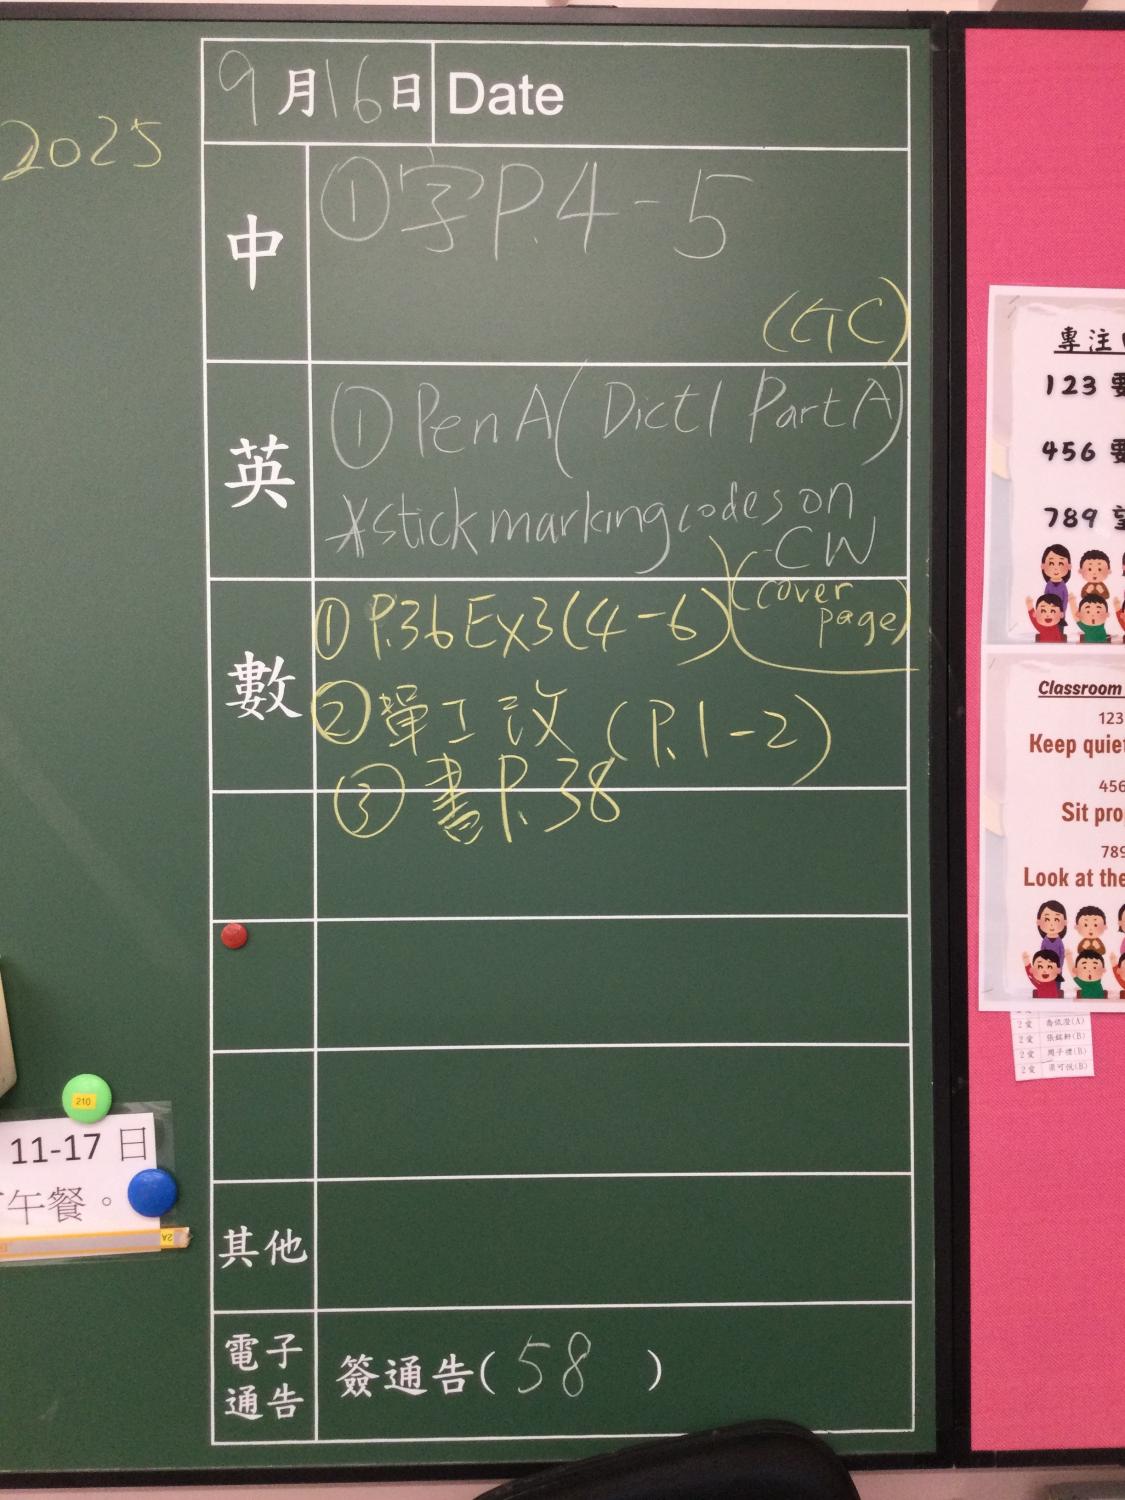 2025
9月16日 Date
中
①字P.4-5
(GC)
英
①Pen A(Dict1 Part A)
*stick marking codes on
CW
(cover
page)
數
①P.36 Ex3(4-6)
②單工改(P.1-2)
③書P.38
其他
電子
通告
簽通告(58)
210
11-17日
午餐。
2A
專注
123 要
456 要
789 望
Classroom
123
Keep quiet
456
Sit pro
789
Look at the
2愛
2愛
2愛
2愛